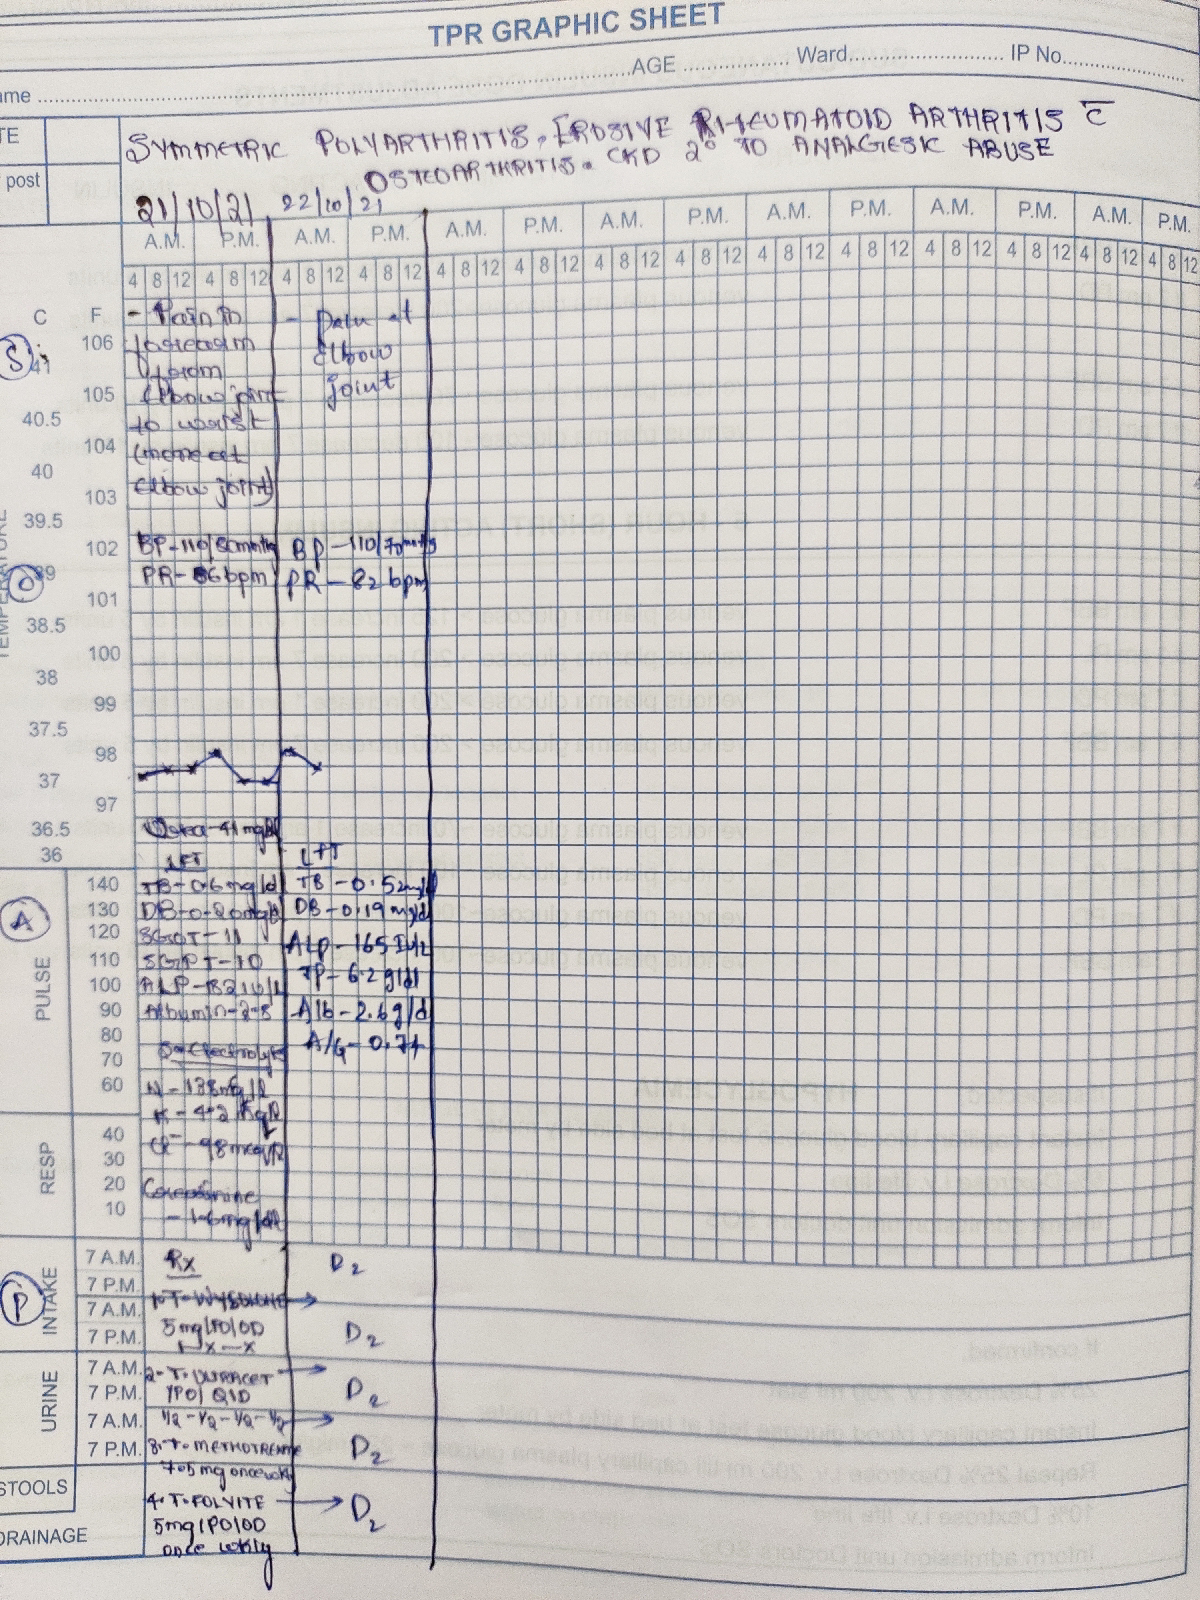 TPR GRAPHIC SHEET
ame ........ AGE ........ Ward ........ IP No. ........
TE
post
SYMMETRIC POLYARTHRITIS, EROSIVE RHEUMATOID ARTHRITIS c̄
OSTEOARTHRITIS. CKD 2° TO ANALGESIC ABUSE
21/10/21 22/10/21
A.M. P.M. A.M. P.M. A.M. P.M. A.M. P.M. A.M. P.M. A.M. P.M. A.M. P.M.
4 8 12 4 8 12 4 8 12 4 8 12 4 8 12 4 8 12 4 8 12 4 8 12 4 8 12 4 8 12 4 8 12 4 8 12 4 8 12 4 8 12
C F
S
106
41
105
40.5
104
40
103
39.5
102
39
101
38.5
100
38
99
37.5
98
37
97
36.5
36
TEMPERATURE
O
- Pain in
forearm
from
Elbow joint
to wrist
(more at
Elbow joint)
- pain at
elbow
joint
BP-110/80mmHg
PR-86bpm
BP-110/70mmHg
PR-82 bpm
Urea-41mg/dl
LFT
TB-0.6mg/dl
DB-0.20mg/dl
SGOT-11
SGPT-10
Albumin-2.5
S. Electrolyte
K-4.2
Cl⁻-98meq/l
Creatinine
-1.6mg/dl
LFT
TB-0.52mg/dl
DB-0.19mg/dl
ALP-165 IU/L
TP-6.2g/dl
Alb-2.6g/dl
A/G-0.74
A
PULSE
140
130
120
110
100
90
80
70
60
RESP
40
30
20
10
P
INTAKE
7 A.M.
7 P.M.
7 A.M.
7 P.M.
URINE
7 A.M.
7 P.M.
7 A.M.
7 P.M.
STOOLS
DRAINAGE
Rx
1. T. WYSOLONE
5mg/PO/OD
1-x-x
2. T. ULTRACET
/PO/ QID
1/2-1/2-1/2-1/2
3. T. METHOTREXATE
7.5mg once wkly
4. T. FOLVITE
5mg/PO/OD
once wkly
D2
D2
D2
D2
D2